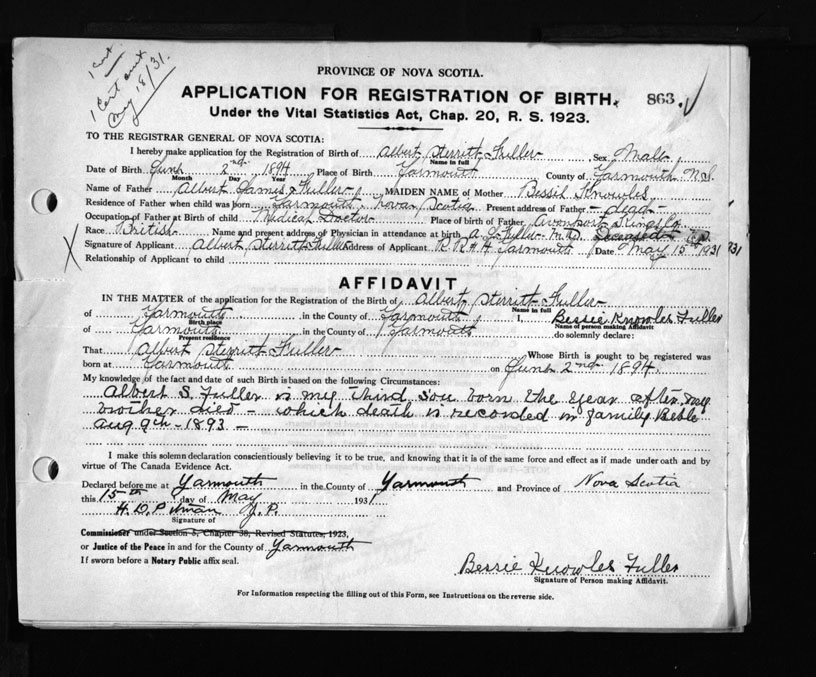 1 Cert.
1 Cert ext
May 18/31.
PROVINCE OF NOVA SCOTIA.
APPLICATION FOR REGISTRATION OF BIRTH. 863.
Under the Vital Statistics Act, Chap. 20, R. S. 1923.
TO THE REGISTRAR GENERAL OF NOVA SCOTIA:
I hereby make application for the Registration of Birth of Albert Sterritt Fuller, Sex Male
Name in full
Date of Birth June 2nd 1894 Place of Birth Yarmouth County of Yarmouth N.S.
Month Day Year
Name of Father Albert James Fuller MAIDEN NAME of Mother Bessie Knowles
Residence of Father when child was born Yarmouth, Nova Scotia Present address of Father - dead -
Occupation of Father at Birth of child Medical Doctor Place of birth of Father Avonport Kings Co
Race British Name and present address of Physician in attendance at birth A. J. Fuller M.D. Deceased
Signature of Applicant Albert Sterritt Fuller Address of Applicant R.R. # 4 Yarmouth Date May 15th 1931 931
Relationship of Applicant to child
X
AFFIDAVIT
IN THE MATTER of the application for the Registration of the Birth of Albert Sterritt Fuller
Name in full
of Yarmouth in the County of Yarmouth I, Bessie Knowles Fuller
Birth place Name of person making Affidavit
of Yarmouth in the County of Yarmouth do solemnly declare:
Present residence
That Albert Sterritt Fuller Whose Birth is sought to be registered was
born at Yarmouth on June 2nd 1894.
My knowledge of the fact and date of such Birth is based on the following Circumstances:
Albert S. Fuller is my third son born the year after my
brother died - which death is recorded in family Bible
Aug 9th - 1893 -
I make this solemn declaration conscientiously believing it to be true, and knowing that it is of the same force and effect as if made under oath and by
virtue of The Canada Evidence Act.
Declared before me at Yarmouth in the County of Yarmouth and Province of Nova Scotia
this 15th day of May 1931
H. D. Pitman J.P.
Signature of
Commissioner under Section 5, Chapter 38, Revised Statutes, 1923,
or Justice of the Peace in and for the County of Yarmouth
If sworn before a Notary Public affix seal.
Bessie Knowles Fuller
Signature of Person making Affidavit.
For Information respecting the filling out of this Form, see Instructions on the reverse side.